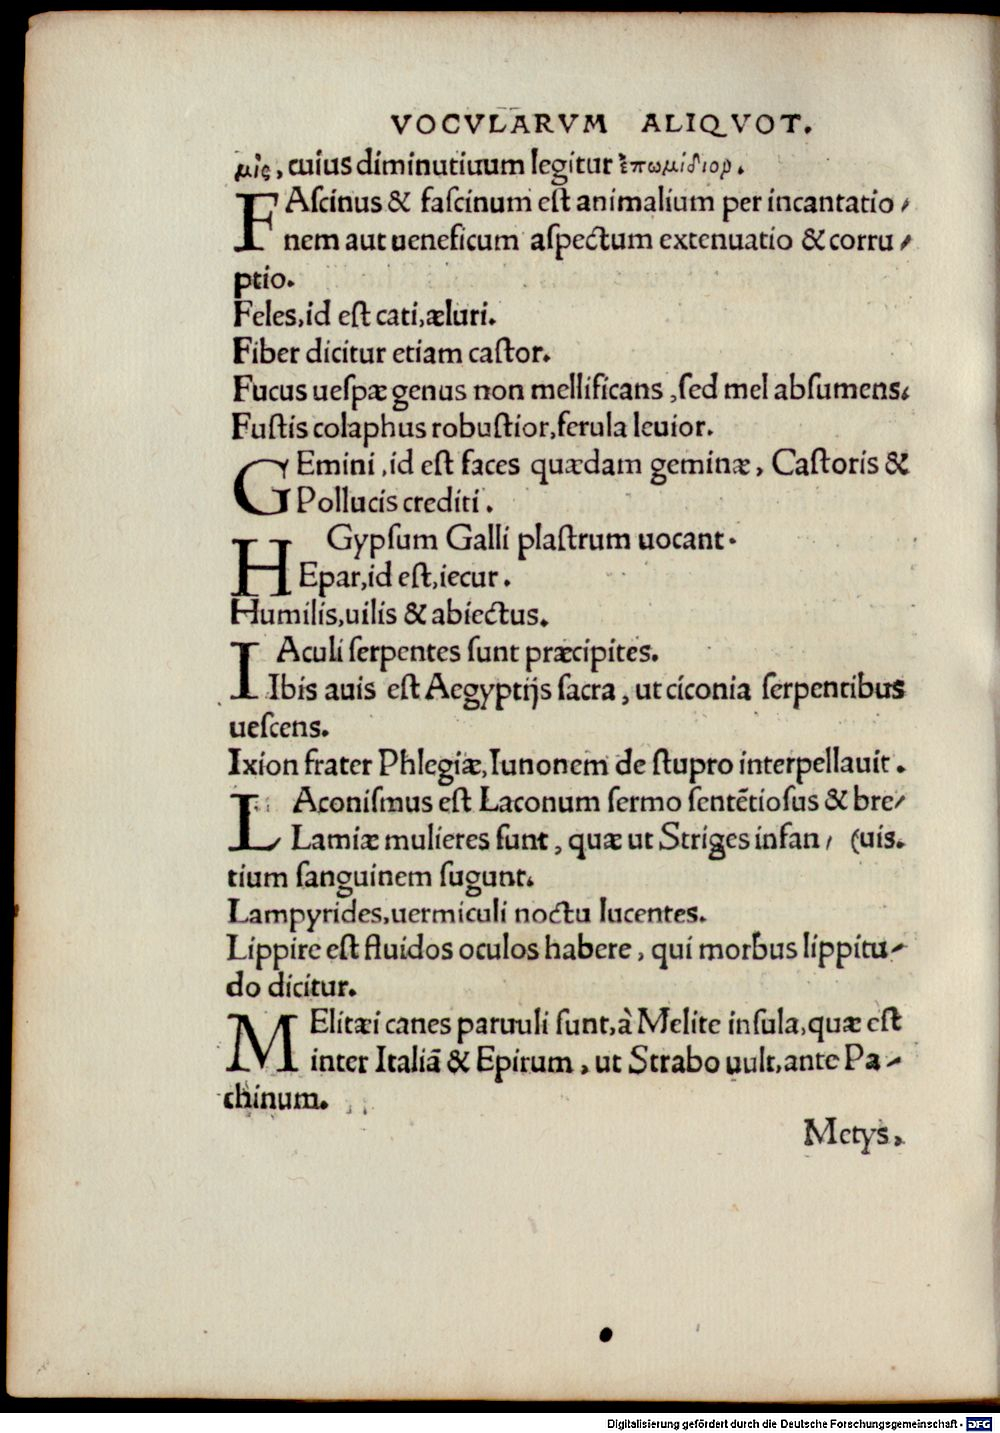 VOCVLARVM ALIQVOT.
μὶς, cuius diminutiuum legitur ἐπωμίδιον.
FAſcinus & faſcinum eſt animalium per incantatio-
nem aut ueneficum aſpectum extenuatio & corru-
ptio.
Feles, id eſt cati, æluri.
Fiber dicitur etiam caſtor.
Fucus ueſpæ genus non mellificans, ſed mel abſumens.
Fuſtis colaphus robuſtior, ferula leuior.
GEmini, id eſt faces quædam geminæ, Caſtoris &
Pollucis crediti.
Gypſum Galli plaſtrum uocant.
HEpar, id eſt, iecur.
Humilis, uilis & abiectus.
IAculi ſerpentes ſunt præcipites.
Ibis auis eſt Aegyptijs ſacra, ut ciconia ſerpentibus
ueſcens.
Ixion frater Phlegiæ, Iunonem de ſtupro interpellauit.
LAconiſmus eſt Laconum ſermo ſentētioſus & bre-
Lamiæ mulieres ſunt, quæ ut Striges infan- (uis.
tium ſanguinem ſugunt.
Lampyrides, uermiculi noctu lucentes.
Lippire eſt fluidos oculos habere, qui morbus lippitu-
do dicitur.
MElitæi canes paruuli ſunt, à Melite inſula, quæ eſt
inter Italiā & Epirum, ut Strabo uult, ante Pa-
chinum.
Metys.
Digitalisierung gefördert durch die Deutsche Forschungsgemeinschaft - DFG